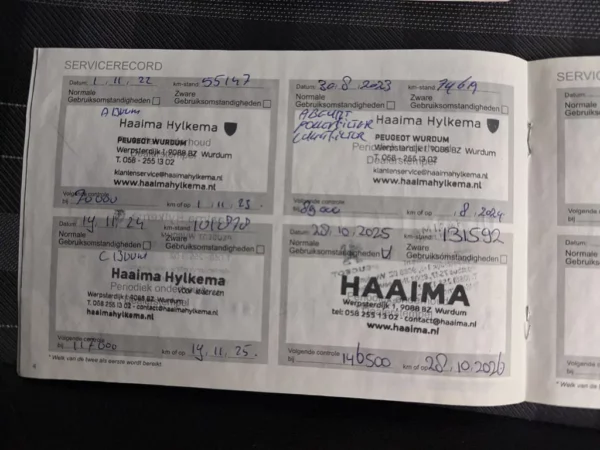 SERVICERECORD
Datum: 1.11.22 km-stand: 55147
Normale Gebruiksomstandigheden
Zware Gebruiksomstandigheden
Haaima Hylkema
PEUGEOT WURDUM
Werpsterdijk 1, 9088 BZ Wurdum
T. 058 - 255 13 02
klantenservice@haaimahylkema.nl
www.haaimahylkema.nl
Volgende controle
bij 70000 km of op 1.11.23.
Datum: 30.8.2023 km-stand:
Normale Gebruiksomstandigheden
Zware Gebruiksomstandigheden
Haaima Hylkema
PEUGEOT WURDUM
Werpsterdijk 1, 9088 BZ Wurdum
T. 058 - 255 13 02
klantenservice@haaimahylkema.nl
www.haaimahylkema.nl
Volgende controle
bij km of op .8.2024
19.11.24 km-stand:
Normale Gebruiksomstandigheden
Zware Gebruiksomstandigheden
Haaima Hylkema
Periodiek
Werpsterdijk 1, 9088 BZ Wurdum
T. 058 255 13 02 - contact@haaima.nl
haaimahylkema.nl
Volgende controle
bij 117000 km of op 19.11.25.
28.10.2025 km-stand: 131592
Normale Gebruiksomstandigheden
Zware Gebruiksomstandigheden
HAAIMA
Werpsterdijk 1, 9088 BZ Wurdum
tel: 058 255 13 02 - contact@haaima.nl
www.haaima.nl
Volgende controle
bij 146500 km of op 28.10.2026
* Welk van de twee als eerste wordt bereikt
SERVIC
Datum:
Normale
Gebruik
Volgend
bij
Datum:
Normale
Gebruik
Volgend
bij
* Welk van de